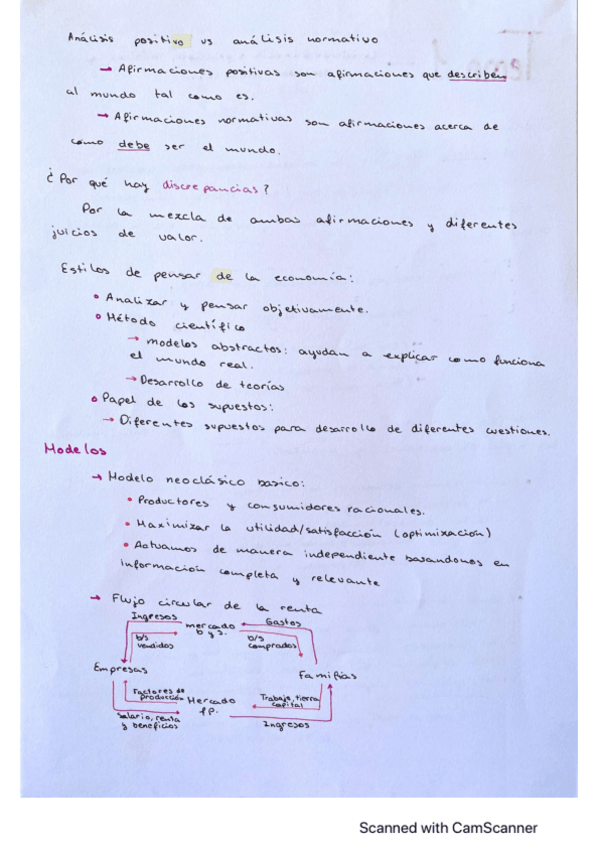 Análisis positivo vs análisis normativo
→ Afirmaciones positivas son afirmaciones que describen
al mundo tal como es.
→ Afirmaciones normativas son afirmaciones acerca de
como debe ser el mundo.
¿Por qué hay discrepancias?
Por la mezcla de ambas afirmaciones y diferentes
juicios de valor.
Estilos de pensar de la economía:
• Analizar y pensar objetivamente.
• Método científico
→ modelos abstractos: ayudan a explicar como funciona
el mundo real.
→ Desarrollo de teorías
• Papel de los supuestos:
→ Diferentes supuestos para desarrollo de diferentes cuestiones.
Modelos
→ Modelo neoclásico basico:
• Productores y consumidores racionales.
• Maximizar la utilidad/satisfacción (optimización)
• Actuamos de manera independiente basandonos en
información completa y relevante
→ Flujo circular de la renta
Ingresos mercado Gastos
b y s.
b/s b/s
vendidos comprados
Empresas Familias
Factores de
producción Mercado Trabajo, tierra
f.p. capital
Salario, renta
y beneficios Ingresos
Scanned with CamScanner